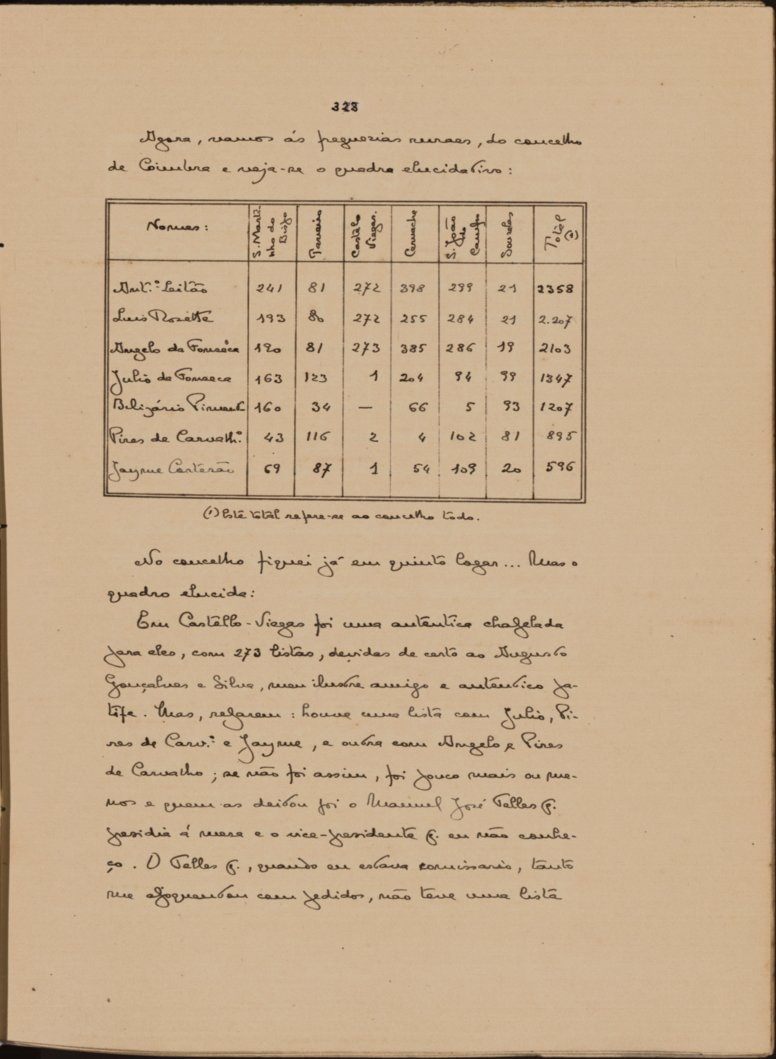 328
Agora, vamos ás freguezias ruraes, do concelho
de Coimbra e veja-se o quadro elucidativo:
Nomes: S. Marti-nho do Bispo Taveiro Castélo Viegas. Cernache S. João do Campo Souzelas Totál (1)
Ant.º Leitão 241 81 272 398 299 21 2358
Luis Rozette 193 80 272 255 284 21 2.207
Angelo da Fonseca 190 81 273 385 286 19 2103
Julio da Fonseca 163 123 1 204 94 99 1347
Belizário Pimenta 160 34 — 66 5 93 1207
Pires de Carvalh.º 43 116 2 4 102 81 895
Jayme Cortezão 69 87 1 54 109 20 596
(1) Este totál refere-se ao concelho todo.
No concelho fiquei já em quinto logar... Mas o
quadro elucida:
Em Castello-Viegas foi uma autentica chapelada
para eles, com 273 listas, devidas de certo ao Augusto
Gonçalves e Silva, meu ilustre amigo e autêntico pa-
tife. Mas, reparem: houve uma lista com Julio, Pi-
res de Carv.º e Jayme, e outra com Angelo e Pires
de Carvalho; se não foi assim, foi pouco mais ou me-
nos e quem as deitou foi o Manuel José Telles q.
presidia á meza e o vice-presidente q. eu não conhe-
ço. O Telles q., quando eu estava comissario, tanto
me apoquentou com pedidos, não teve uma lista